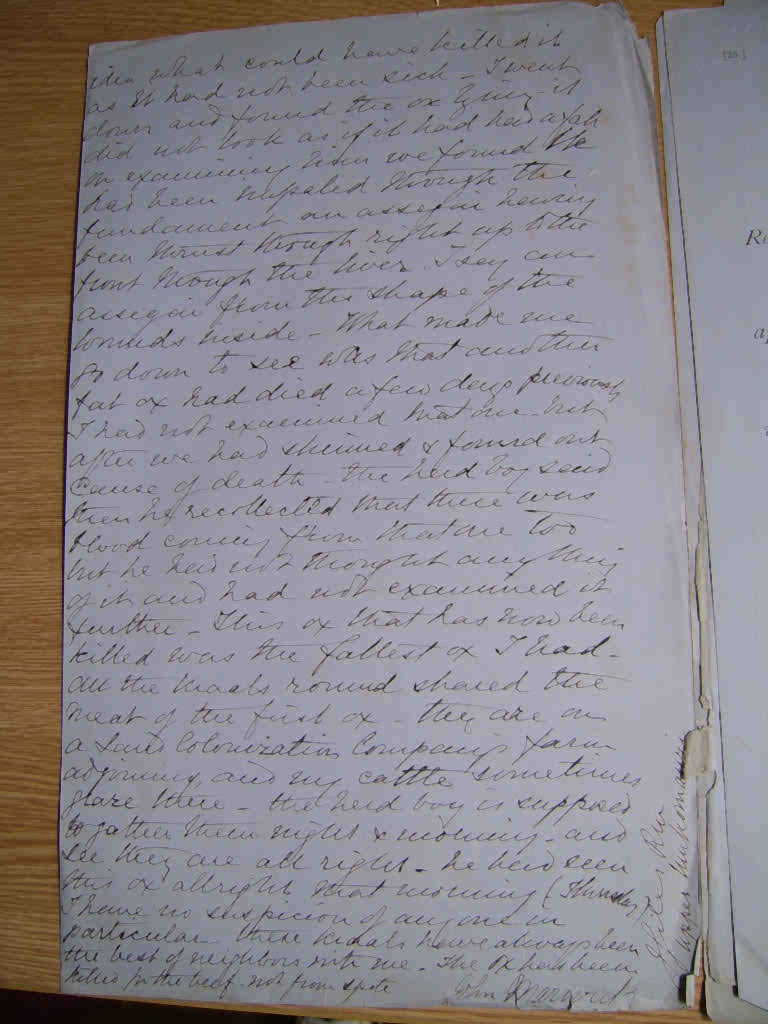 idea what could have killed it
as it had not been sick - I went
down and found the ox lying - it
did not look as if it had had a fall
on examining him we found he
had been impaled through the
fundament an assegai having
been thrust through right up to the
front through the liver. I say an
assegai from the shape of the
wounds inside - What made me
go down to see was that another
fat ox had died a few days previously
I had not examined that one - but
after we had skinned & found out
cause of death - the herd boy said
then he recollected that there was
blood coming from that one too
but he had not thought anything
of it and had not examined it
further - This ox that has now been
killed was the fattest ox I had -
All the kraals round shared the
meat of the first ox - they are on
a Land Colonization Company's farm
adjoining, and my cattle sometimes
graze there - the herd boy is supposed
to gather them night & morning - and
see they are all right - he had seen
this ox allright that morning (Thursday)
I have no suspicion of anyone in
particular - these kraals have always been
the best of neighbors with me - The ox has been
killed for the beef - not from spite
John
Upper Umkomaas
[25.]